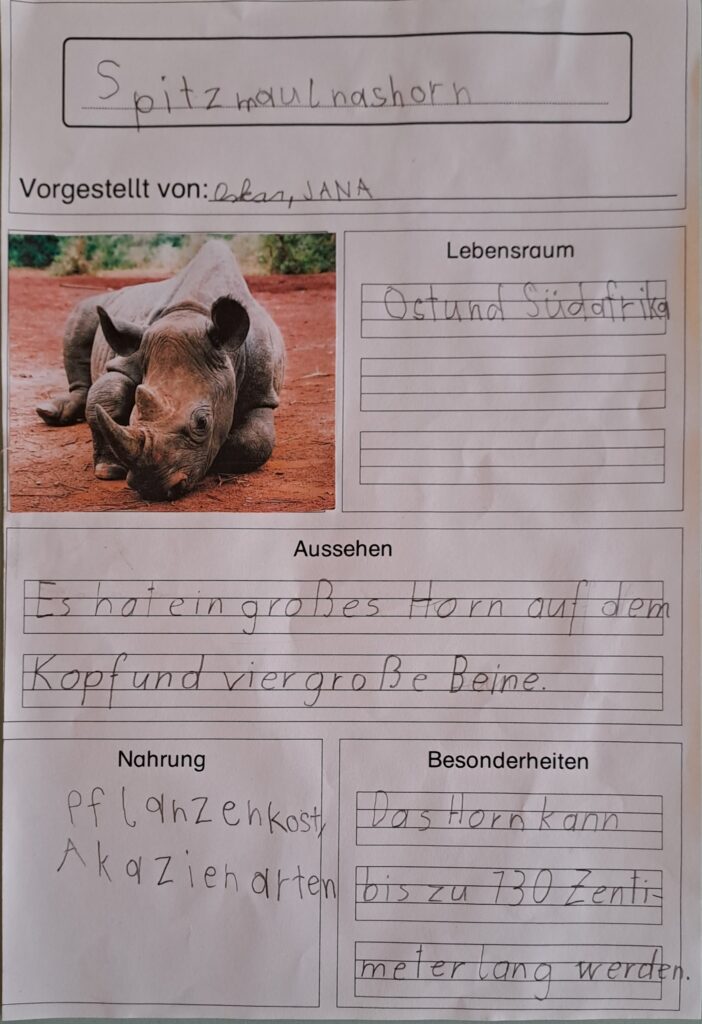 Spitzmaulnashorn
Vorgestellt von: Oskar, JANA
Lebensraum
Ost und Südafrika
Aussehen
Es hat ein großes Horn auf dem
Kopf und vier große Beine.
Nahrung
Pflanzenkost,
Akazienarten
Besonderheiten
Das Horn kann
bis zu 130 Zenti-
meter lang werden.